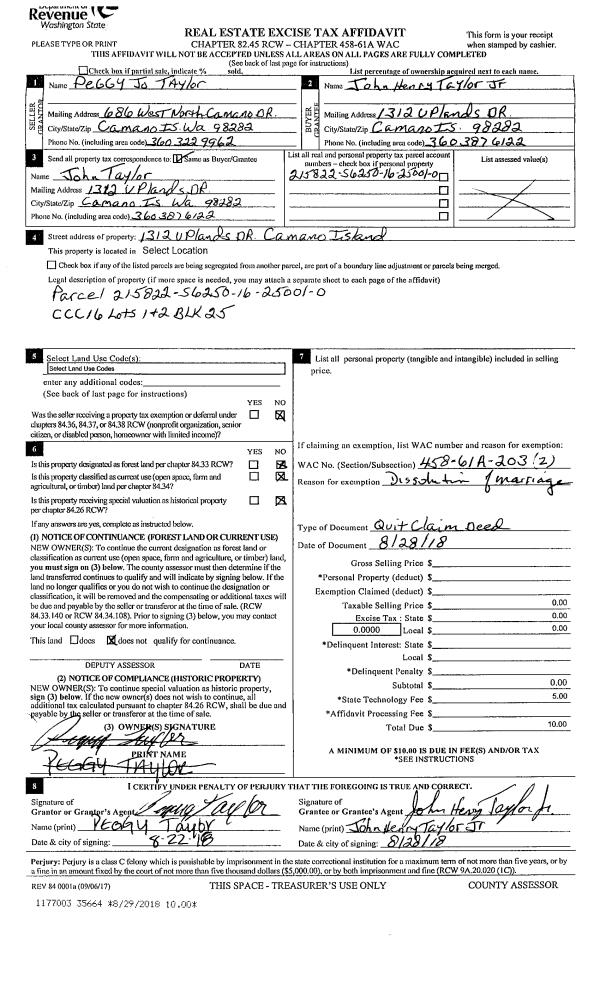 Department of
Revenue
Washington State
REAL ESTATE EXCISE TAX AFFIDAVIT
PLEASE TYPE OR PRINT
CHAPTER 82.45 RCW – CHAPTER 458-61A WAC
This form is your receipt
when stamped by cashier.
THIS AFFIDAVIT WILL NOT BE ACCEPTED UNLESS ALL AREAS ON ALL PAGES ARE FULLY COMPLETED
(See back of last page for instructions)
Check box if partial sale, indicate % sold, List percentage of ownership acquired next to each name.
1 Name PeGGY Jo TAYlor
SELLER GRANTOR
Mailing Address 686 West North Camano DR.
City/State/Zip Camano Is. Wa 98282
Phone No. (including area code) 360 322 9962
2 Name John Henry Taylor Jr
BUYER GRANTEE
Mailing Address 1312 UPlands DR.
City/State/Zip Camano Is. 98282
Phone No. (including area code) 360 387 6122
3 Send all property tax correspondence to: Same as Buyer/Grantee
Name John Taylor
Mailing Address 1312 UPlands DR
City/State/Zip Camano Is Wa 98282
Phone No. (including area code) 360 387 6122
List all real and personal property tax parcel account
numbers – check box if personal property
215822-S6250-16-25001-0
List assessed value(s)
4 Street address of property: 1312 UPlands DR. Camano Island
This property is located in Select Location
Check box if any of the listed parcels are being segregated from another parcel, are part of a boundary line adjustment or parcels being merged.
Legal description of property (if more space is needed, you may attach a separate sheet to each page of the affidavit)
Parcel 215822-S6250-16-25001-0
CCC16 Lots 1+2 BLK 25
5 Select Land Use Code(s):
Select Land Use Codes
enter any additional codes:
(See back of last page for instructions)
YES NO
Was the seller receiving a property tax exemption or deferral under
chapters 84.36, 84.37, or 84.38 RCW (nonprofit organization, senior
citizen, or disabled person, homeowner with limited income)?
6 YES NO
Is this property designated as forest land per chapter 84.33 RCW?
Is this property classified as current use (open space, farm and
agricultural, or timber) land per chapter 84.34?
Is this property receiving special valuation as historical property
per chapter 84.26 RCW?
If any answers are yes, complete as instructed below.
(1) NOTICE OF CONTINUANCE (FOREST LAND OR CURRENT USE)
NEW OWNER(S): To continue the current designation as forest land or
classification as current use (open space, farm and agriculture, or timber) land,
you must sign on (3) below. The county assessor must then determine if the
land transferred continues to qualify and will indicate by signing below. If the
land no longer qualifies or you do not wish to continue the designation or
classification, it will be removed and the compensating or additional taxes will
be due and payable by the seller or transferor at the time of sale. (RCW
84.33.140 or RCW 84.34.108). Prior to signing (3) below, you may contact
your local county assessor for more information.
This land does does not qualify for continuance.
DEPUTY ASSESSOR DATE
(2) NOTICE OF COMPLIANCE (HISTORIC PROPERTY)
NEW OWNER(S): To continue special valuation as historic property,
sign (3) below. If the new owner(s) does not wish to continue, all
additional tax calculated pursuant to chapter 84.26 RCW, shall be due and
payable by the seller or transferor at the time of sale.
(3) OWNER(S) SIGNATURE
Peggy Taylor
PRINT NAME
PEGGY TAYLOR
7 List all personal property (tangible and intangible) included in selling
price.
If claiming an exemption, list WAC number and reason for exemption:
WAC No. (Section/Subsection) 458-61A-203 (2)
Reason for exemption Dissolution of marriage
Type of Document Quit Claim Deed
Date of Document 8/28/18
Gross Selling Price $
*Personal Property (deduct) $
Exemption Claimed (deduct) $
Taxable Selling Price $ 0.00
Excise Tax : State $ 0.00
0.0000 Local $ 0.00
*Delinquent Interest: State $
Local $
*Delinquent Penalty $
Subtotal $ 0.00
*State Technology Fee $ 5.00
*Affidavit Processing Fee $
Total Due $ 10.00
A MINIMUM OF $10.00 IS DUE IN FEE(S) AND/OR TAX
*SEE INSTRUCTIONS
8 I CERTIFY UNDER PENALTY OF PERJURY THAT THE FOREGOING IS TRUE AND CORRECT.
Signature of
Grantor or Grantor's Agent Peggy Taylor
Name (print) PEGGY Taylor
Date & city of signing: 8-22-18
Signature of
Grantee or Grantee's Agent John Henry Taylor Jr.
Name (print) John Henry Taylor Jr
Date & city of signing: 8/28/18
Perjury: Perjury is a class C felony which is punishable by imprisonment in the state correctional institution for a maximum term of not more than five years, or by
a fine in an amount fixed by the court of not more than five thousand dollars ($5,000.00), or by both imprisonment and fine (RCW 9A.20.020 (1C)).
REV 84 0001a (09/06/17) THIS SPACE - TREASURER'S USE ONLY COUNTY ASSESSOR
1177003 35664 *8/29/2018 10.00*